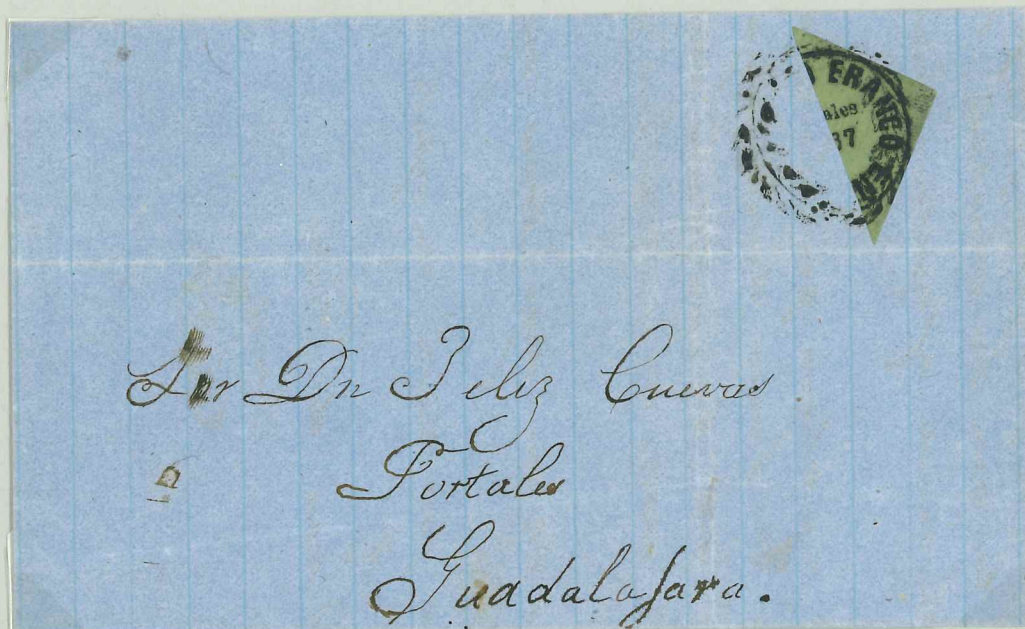 O FRANCO EN
ales
67
Sor Dn Feliz Cuevas
Portales
Guadalajara.